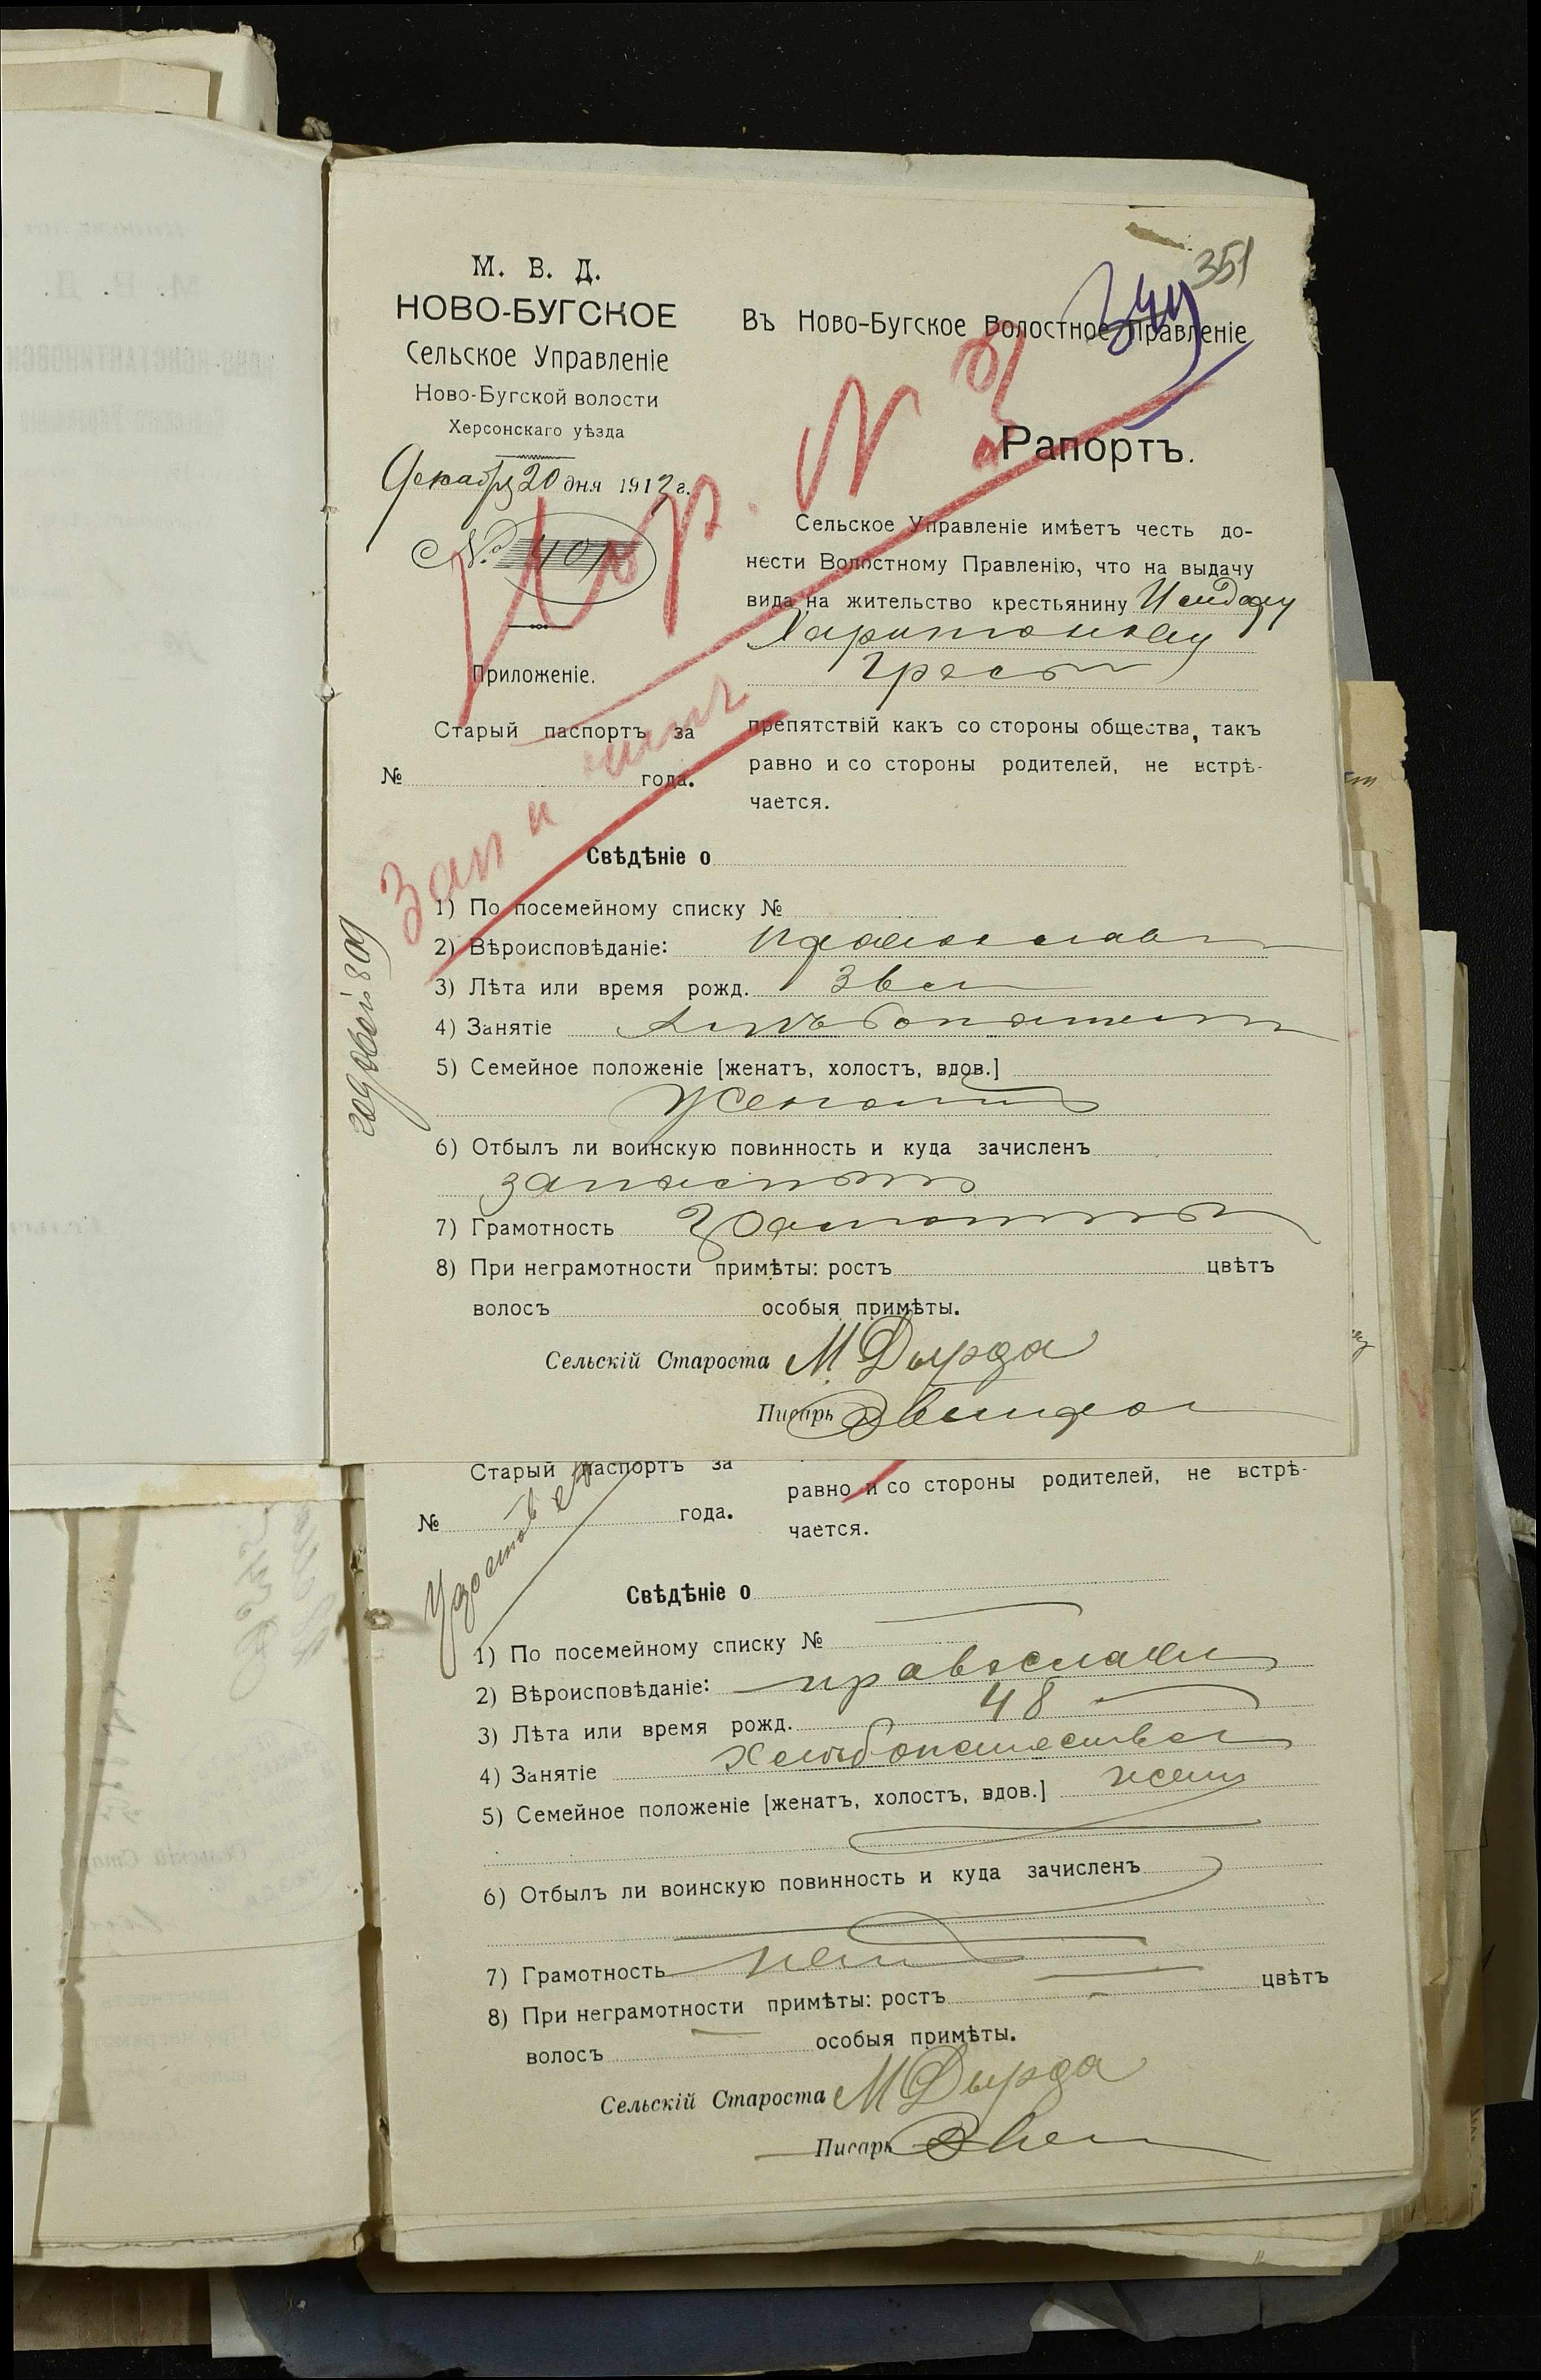 351
344
М. В. Д.
НОВО-БУГСКОЕ
Сельское Управленіе
Ново-Бугской волости
Херсонскаго уѣзда
Декабря 20 дня 1912 г.
№ 401
Приложеніе.
Старый паспортъ за
№ года.
Въ Ново-Бугское Волостное Правленіе
Рапортъ.
Сельское Управленіе имѣетъ честь до-
нести Волостному Правленію, что на выдачу
вида на жительство крестьянину
Харитонову
препятствій какъ со стороны общества, такъ
равно и со стороны родителей, не встрѣ-
чается.
Свѣдѣніе о
1) По посемейному списку №
2) Вѣроисповѣданіе: православн
3) Лѣта или время рожд.
4) Занятіе
5) Семейное положеніе [женатъ, холостъ, вдов.]
Женатъ
6) Отбылъ ли воинскую повинность и куда зачисленъ
запасной
7) Грамотность Грамотный
8) При неграмотности примѣты: ростъ цвѣтъ
волосъ особыя примѣты.
Сельскій Староста М. Дырда
Писарь
годовой 809
Старый паспортъ за
№ года.
равно и со стороны родителей, не встрѣ-
чается.
Свѣдѣніе о
1) По посемейному списку №
2) Вѣроисповѣданіе: православн
3) Лѣта или время рожд. 48
4) Занятіе хлѣбопашество
5) Семейное положеніе [женатъ, холостъ, вдов.] жен
6) Отбылъ ли воинскую повинность и куда зачисленъ
7) Грамотность нетъ
8) При неграмотности примѣты: ростъ цвѣтъ
волосъ особыя примѣты.
Сельскій Староста М Дырда
Писарь